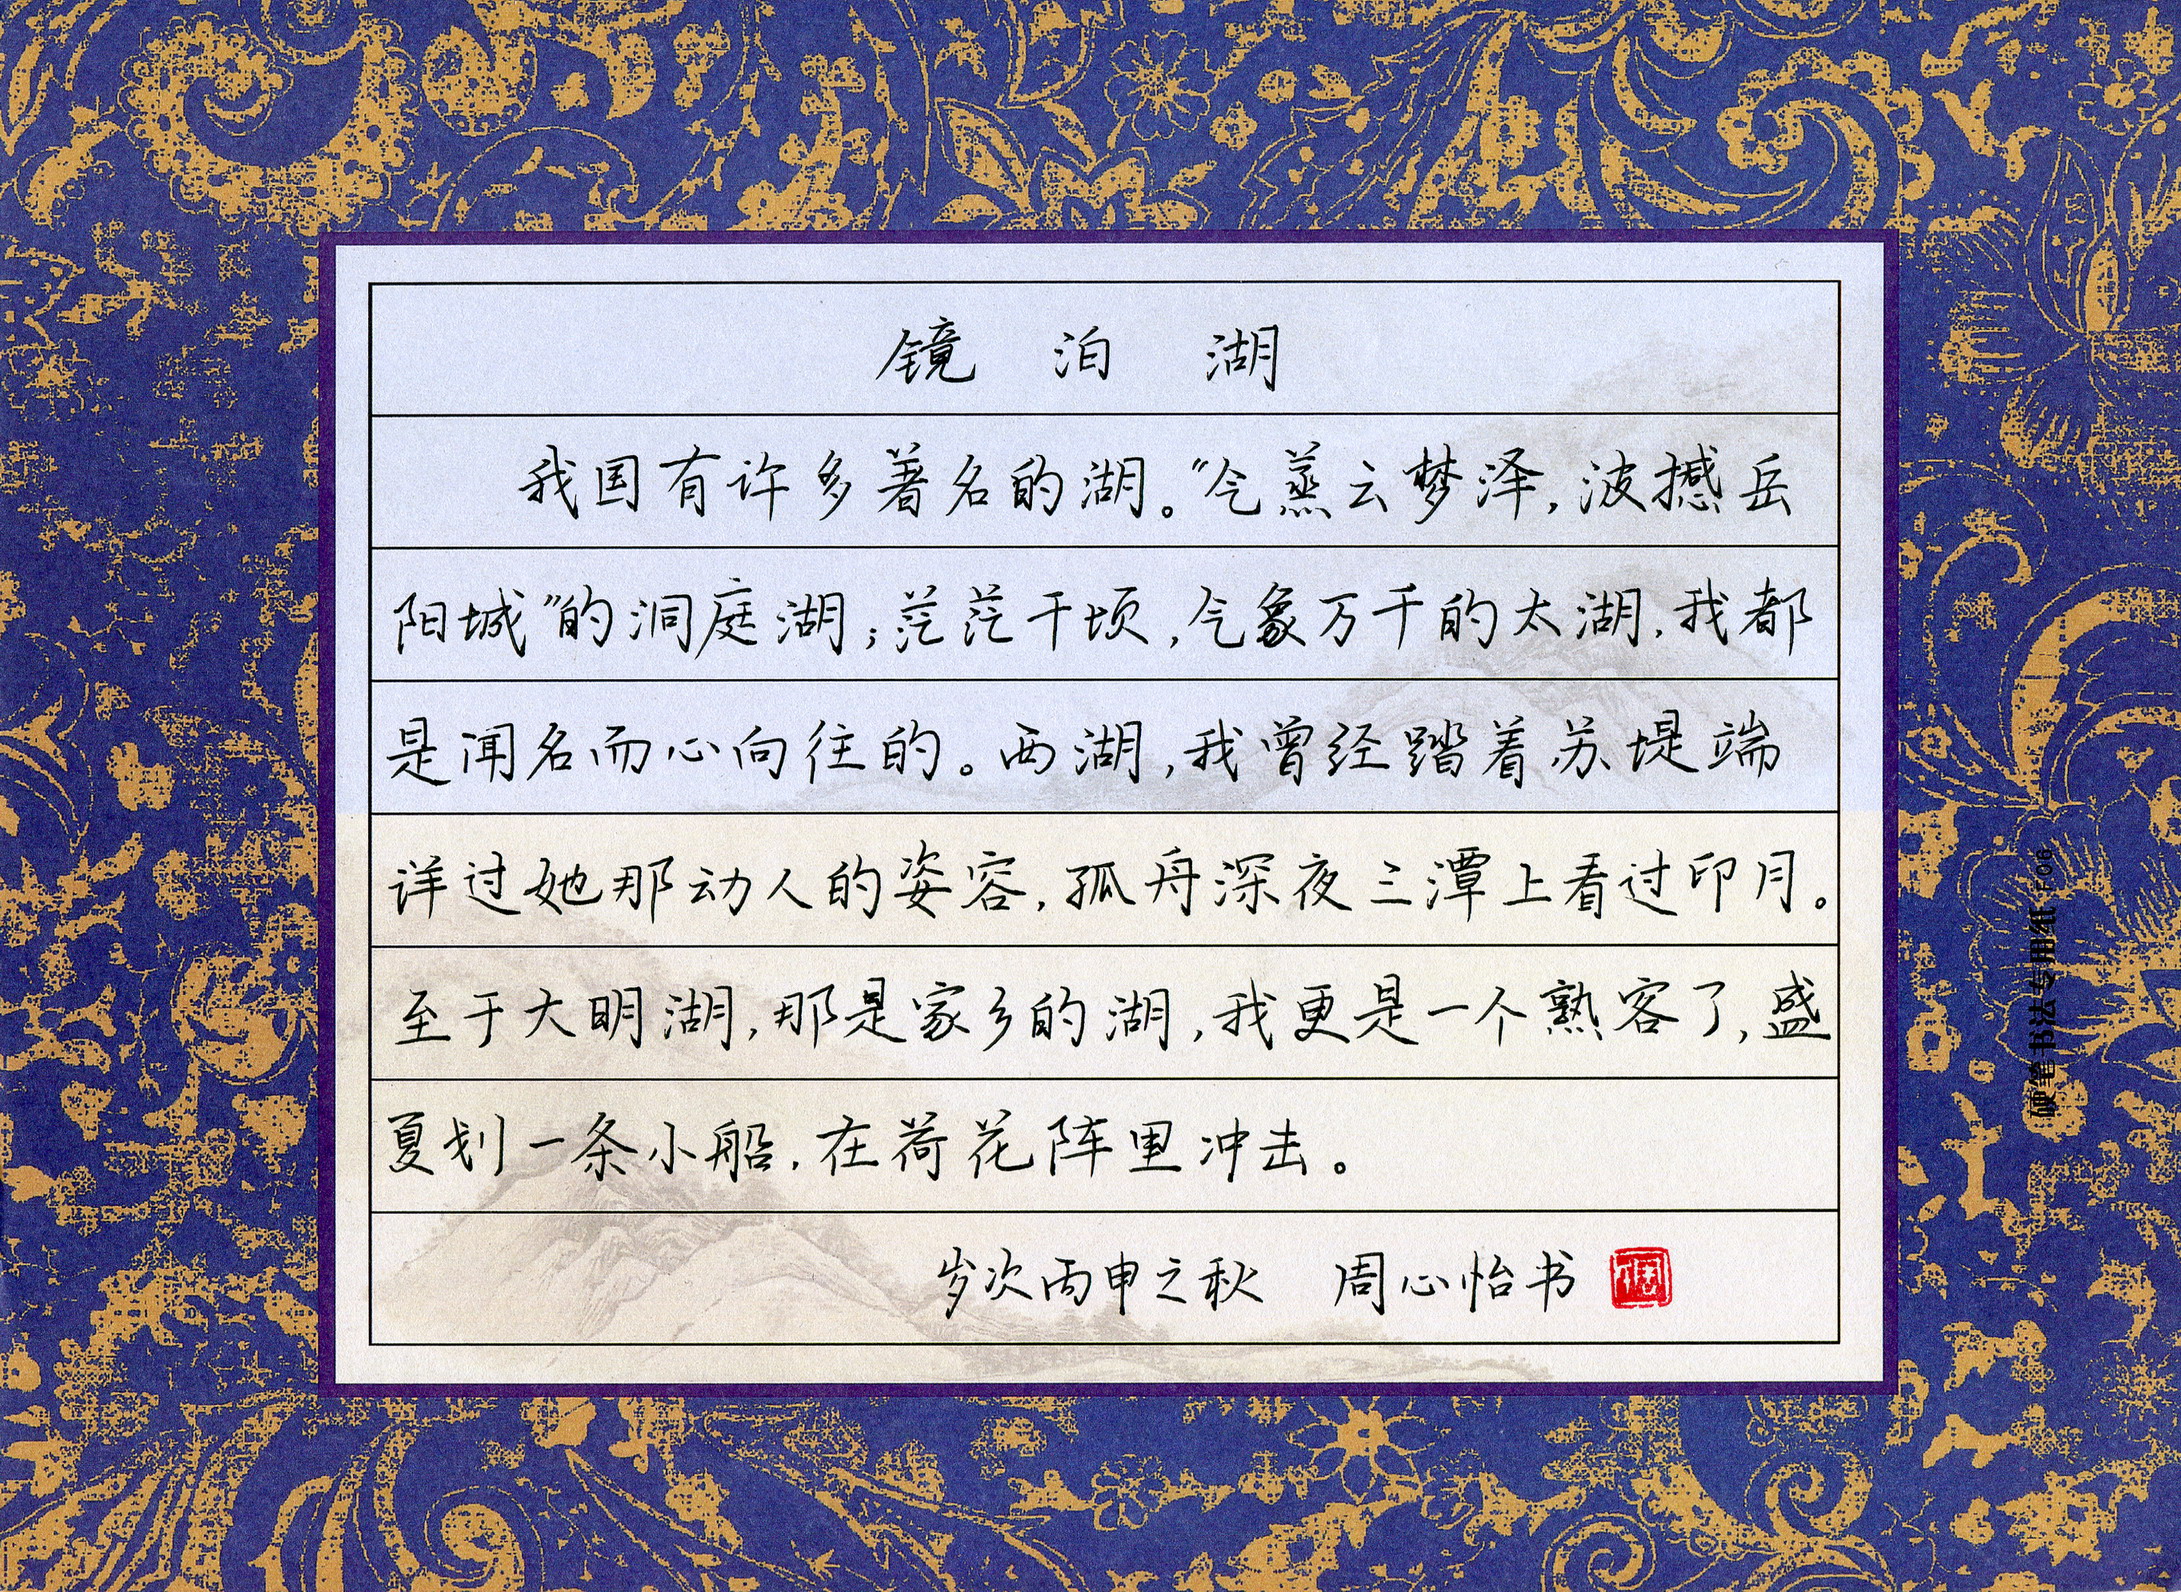 镜泊湖
我国有许多著名的湖。“气蒸云梦泽，波撼岳
阳城”的洞庭湖；茫茫千顷，气象万千的太湖，我都
是闻名而心向往的。西湖，我曾经踏着苏堤端
详过她那动人的姿容，孤舟深夜三潭上看过印月。
至于大明湖，那是家乡的湖，我更是一个熟客了，盛
夏划一条小船，在荷花阵里冲击。
岁次丙申之秋 周心怡书
硬笔书法专用纸 F06